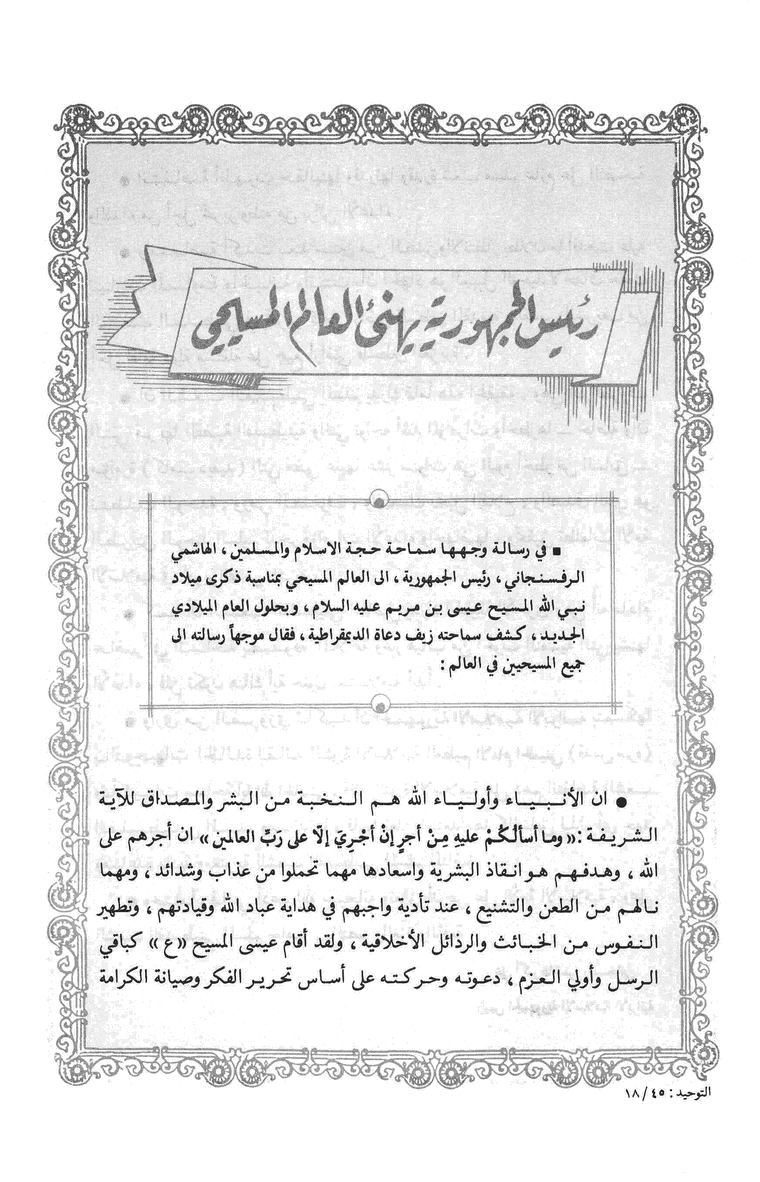 رئيس الجمهورية يهنئ العالم المسيحي
▪ في رسالة وجهها سماحة حجة الاسلام والمسلمين ، الهاشمي
الرفسنجاني ، رئيس الجمهورية ، الى العالم المسيحي بمناسبة ذكرى ميلاد
نبي الله المسيح عيسى بن مريم عليه السلام ، وبحلول العام الميلادي
الجديد ، كشف سماحته زيف دعاة الديمقراطية ، فقال موجهاً رسالته الى
جميع المسيحيين في العالم :
● ان الأنبياء وأولياء الله هم النخبة من البشر والمصداق للآية
الشريفة : «وما أسألُكُمْ عليهِ مِنْ أجرٍ إنْ أجْرِيَ إلّا على رَبِّ العالمين» ان أجرهم على
الله ، وهدفهم هو انقاذ البشرية واسعادها مهما تحملوا من عذاب وشدائد ، ومهما
نالهم من الطعن والتشنيع ، عند تأدية واجبهم في هداية عباد الله وقيادتهم ، وتطهير
النفوس من الخبائث والرذائل الأخلاقية ، ولقد أقام عيسى المسيح «ع» كباقي
الرسل وأولي العزم ، دعوته وحركته على أساس تحرير الفكر وصيانة الكرامة
التوحيد : ٤٥ / ١٨